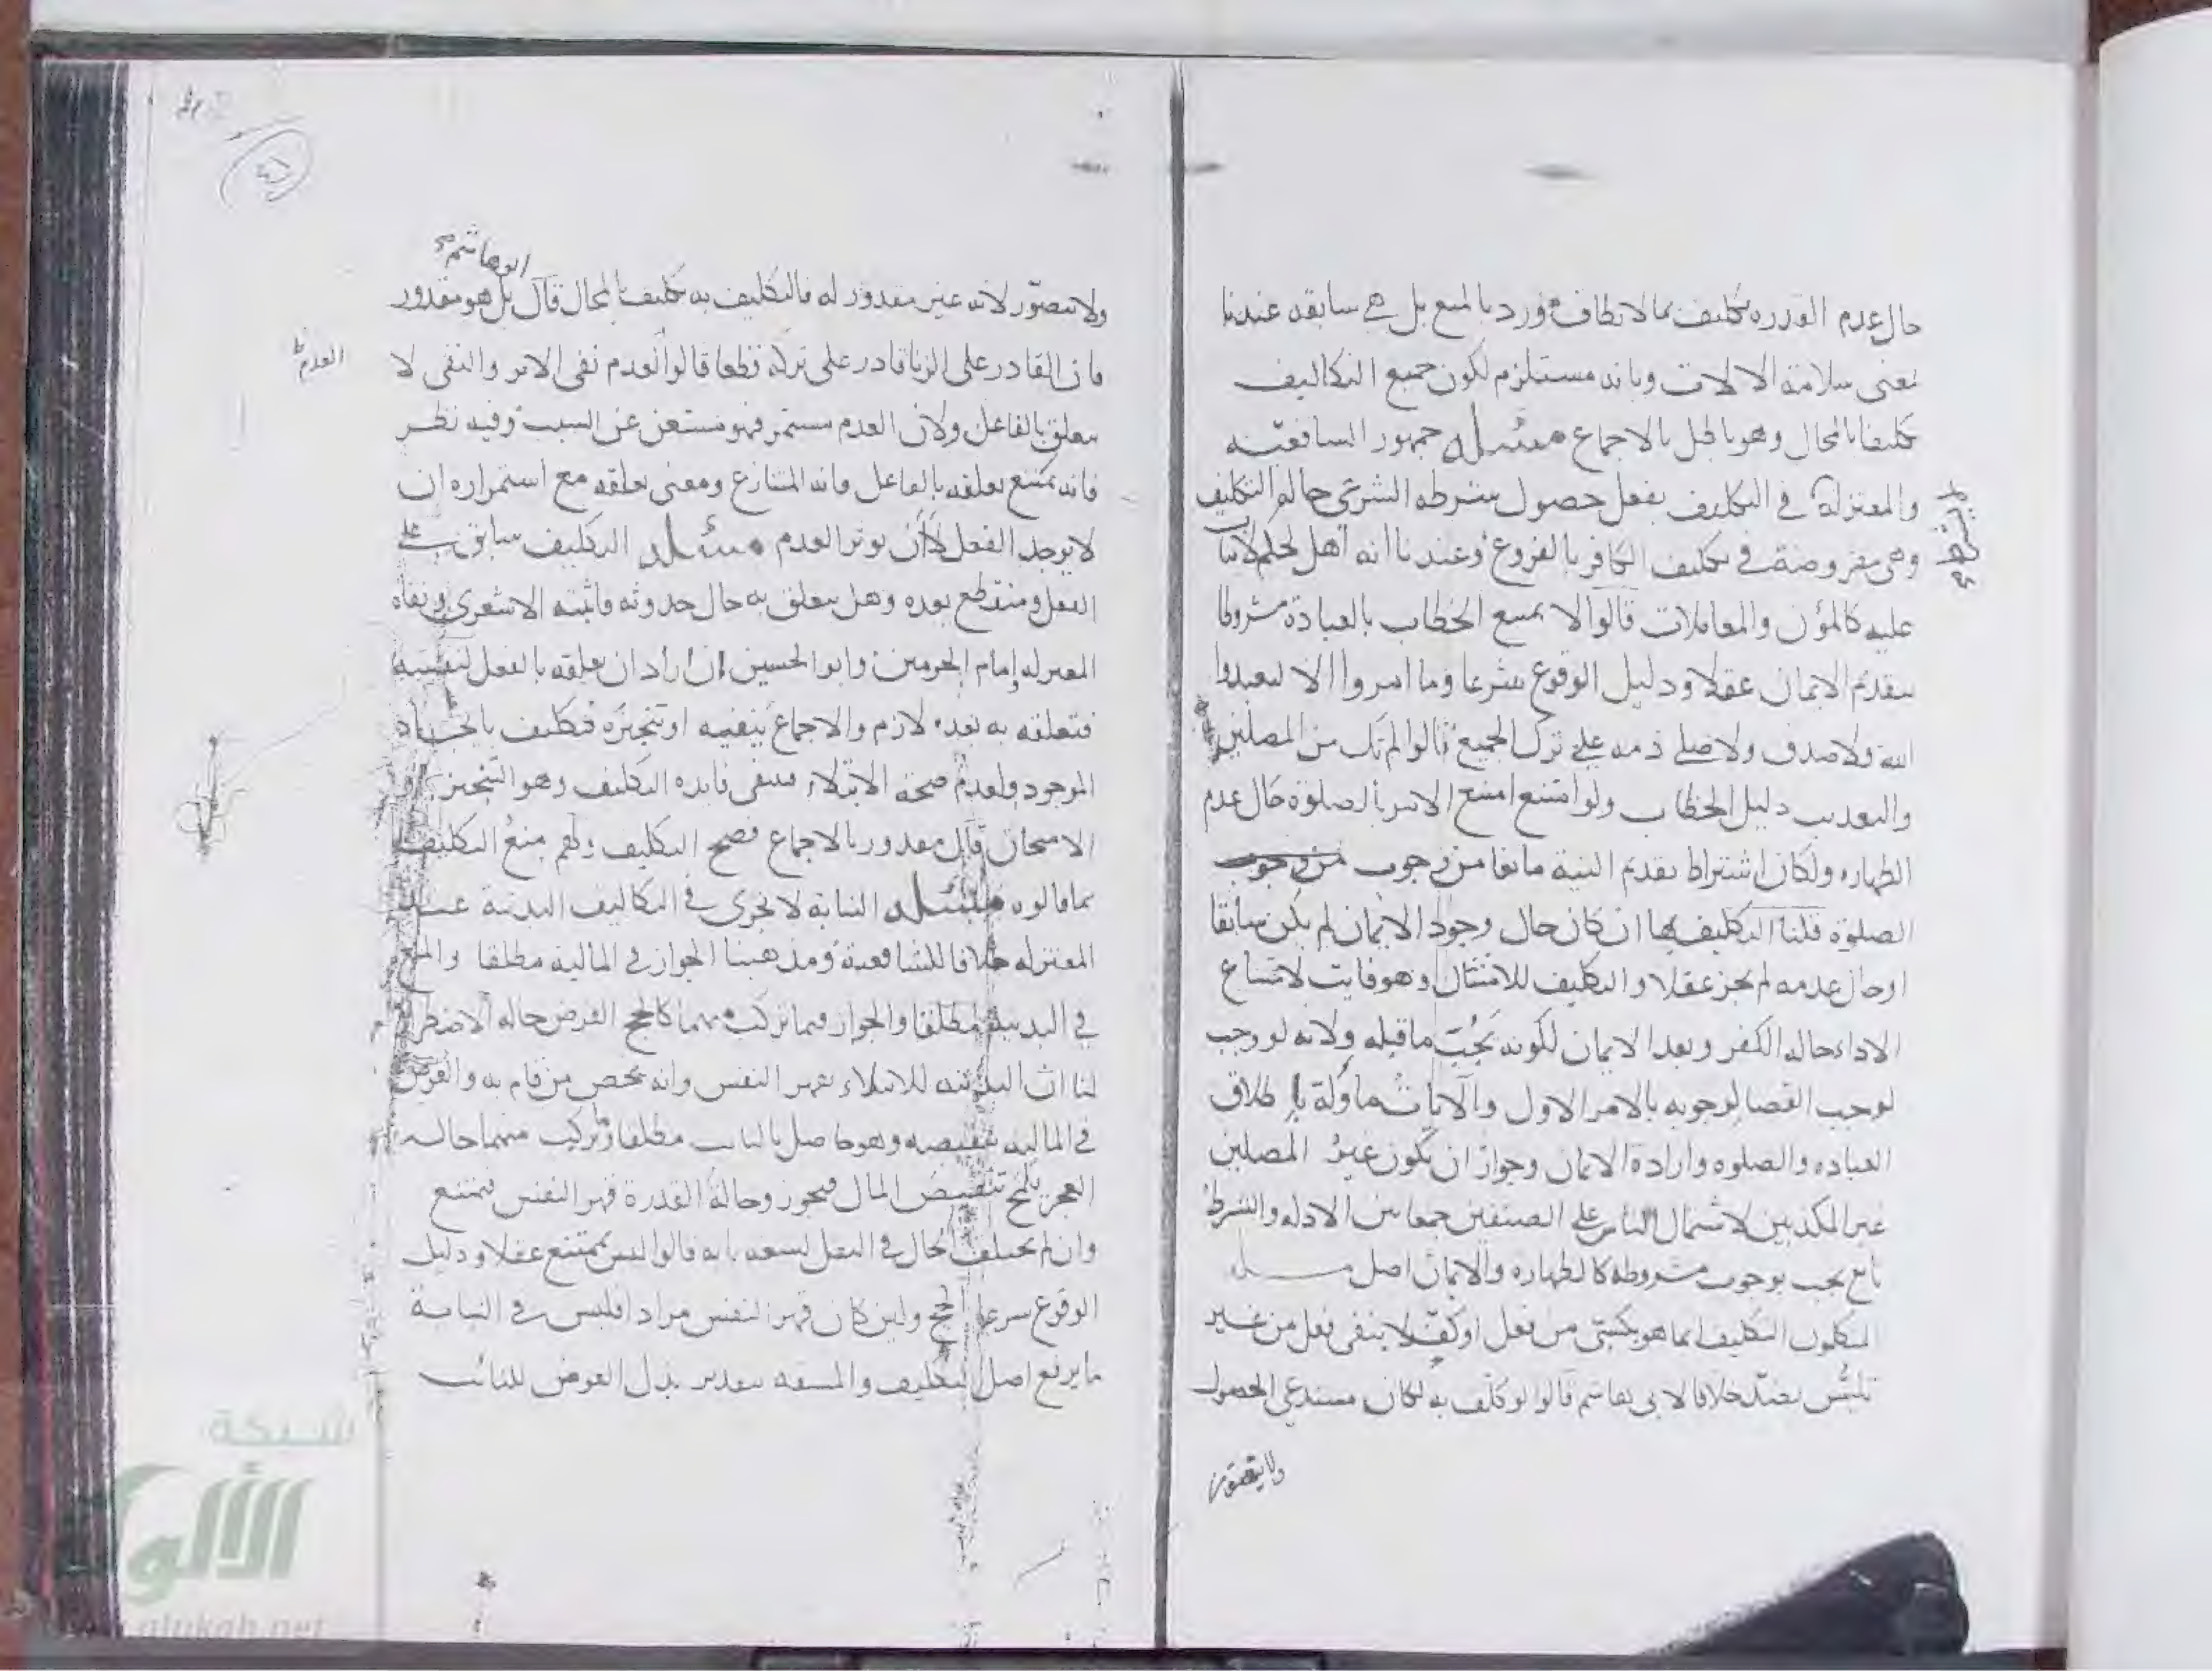 حال عدم القدرة تكليف بما لا يطاق فورد بالمنع بل هي سابقه عندنا
بمعنى سلامة الالات وبانه مستلزم لكون جميع التكاليف
تكليفا بالمحال وهو باطل بالاجماع مسئله جمهور الشافعية
والمعتزلة في التكليف بفعل حصول شرطه الشرعي حالة التكليف
وهي مفروضة في تكليف الكافر بالفروع وعندنا انه اهل لحكم لا
عليه كالمؤن والمعاملات قالوا لا يمتنع الخطاب بالعبادة مشروطا
بتقديم الايمان عقلا ودليل الوقوع شرعا وما امروا الا ليعبدوا
الله ولا صدق ولا صلى ذمه على ترك الجميع قالوا لم نك من المصلين
والتعذيب دليل الخطاب ولو امتنع امتنع الامر بالصلوة حال عدم
الطهاره ولكان اشتراط تقديم النية مانعا من وجوب من وجوب
الصلوة قلنا التكليف بها ان كان حال وجود الايمان لم يكن سابقا
او حال عدمه لم يجز عقلا والتكليف للامتثال وهو فايت لامتناع
الاداء حاله الكفر وبعد الايمان لكونه يجب ما قبله ولانه لو وجب
لوجب القضا لوجوبه بالامر الاول والآيات مأولة باطلاق
العباده والصلوه وارادة الايمان وجواز ان يكون غير المصلين
غير المكذبين لاشتمال الناس على الصنفين جمعا بين الادله والشرط
تابع يجب بوجوب مشروطه كالطهاره والايمان اصل مسله
المتكلمون التكليف انما هو بكسبي من فعل او كف لا بنفي فعل من غير
تلبس بضد خلافا لابي هاشم قالوا لو كلف به لكان مستدعى الحصول
ولا يتصور
ابو هاشم
ولا يتصور لانه غير مقدور له فالتكليف به تكليف بالمحال قال بل هو مقدور
فان القادر على الزنا قادر على تركه قطعا قالوا العدم نفى الاثر والنفى لا
العدم
يتعلق بالفاعل ولان العدم مستمر فهو مستغن عن السبب وفيه نظر
فانه يمتنع تعلقه بالفاعل فانه المتنازع ومعنى تعلقه مع استمراره ان
لا يوجد الفعل لا ان يوثر العدم مسئله التكليف سابق على
الفعل ومنقطع بعده وهل يتعلق به حال حدوثه فاثبته الاشعري ونفاه
المعتزله وامام الحرمين وابو الحسين ان اراد ان تعلقه بالفعل لنفسه
فتعلقه به بعده لازم والاجماع ينفيه او تنجيزه فتكليف بايجاد
الموجود ولعدم صحة الابتلاء فتنتفى فايده التكليف وهو التنجيز او
الامتحان قال مقدور بالاجماع فصح التكليف ولهم منع التكليف
بما قالوه مسئله النيابة لا تجرى في التكاليف البدنية عند
المعتزله خلافا للشافعية ومذهبنا الجواز في المالية مطلقا والمنع
في البدنية مطلقا والجواز فيما تركب منهما كالحج الفرض حاله الاضطرار
لنا ان البدنيه للابتلاء بقهر النفس وانه يخص من قام به والغرض
في الماليه تنقيصه وهو حاصل بالنائب مطلقا وتركيب منهما حاله
العجز يلمح تنقيص المال فيجوز وحالة القدرة قهر النفس فيمتنع
وان لم يختلف الحال في النفل لسعه بابه قالوا ليس بممتنع عقلا ودليل
الوقوع شرعا الحج ولئن كان قهر النفس مرادا فليس في النيابة
ما يرفع اصل التكليف والمشقه بتقدير بذل العوض للنائب
شبكة
الألوكة
alukah.net